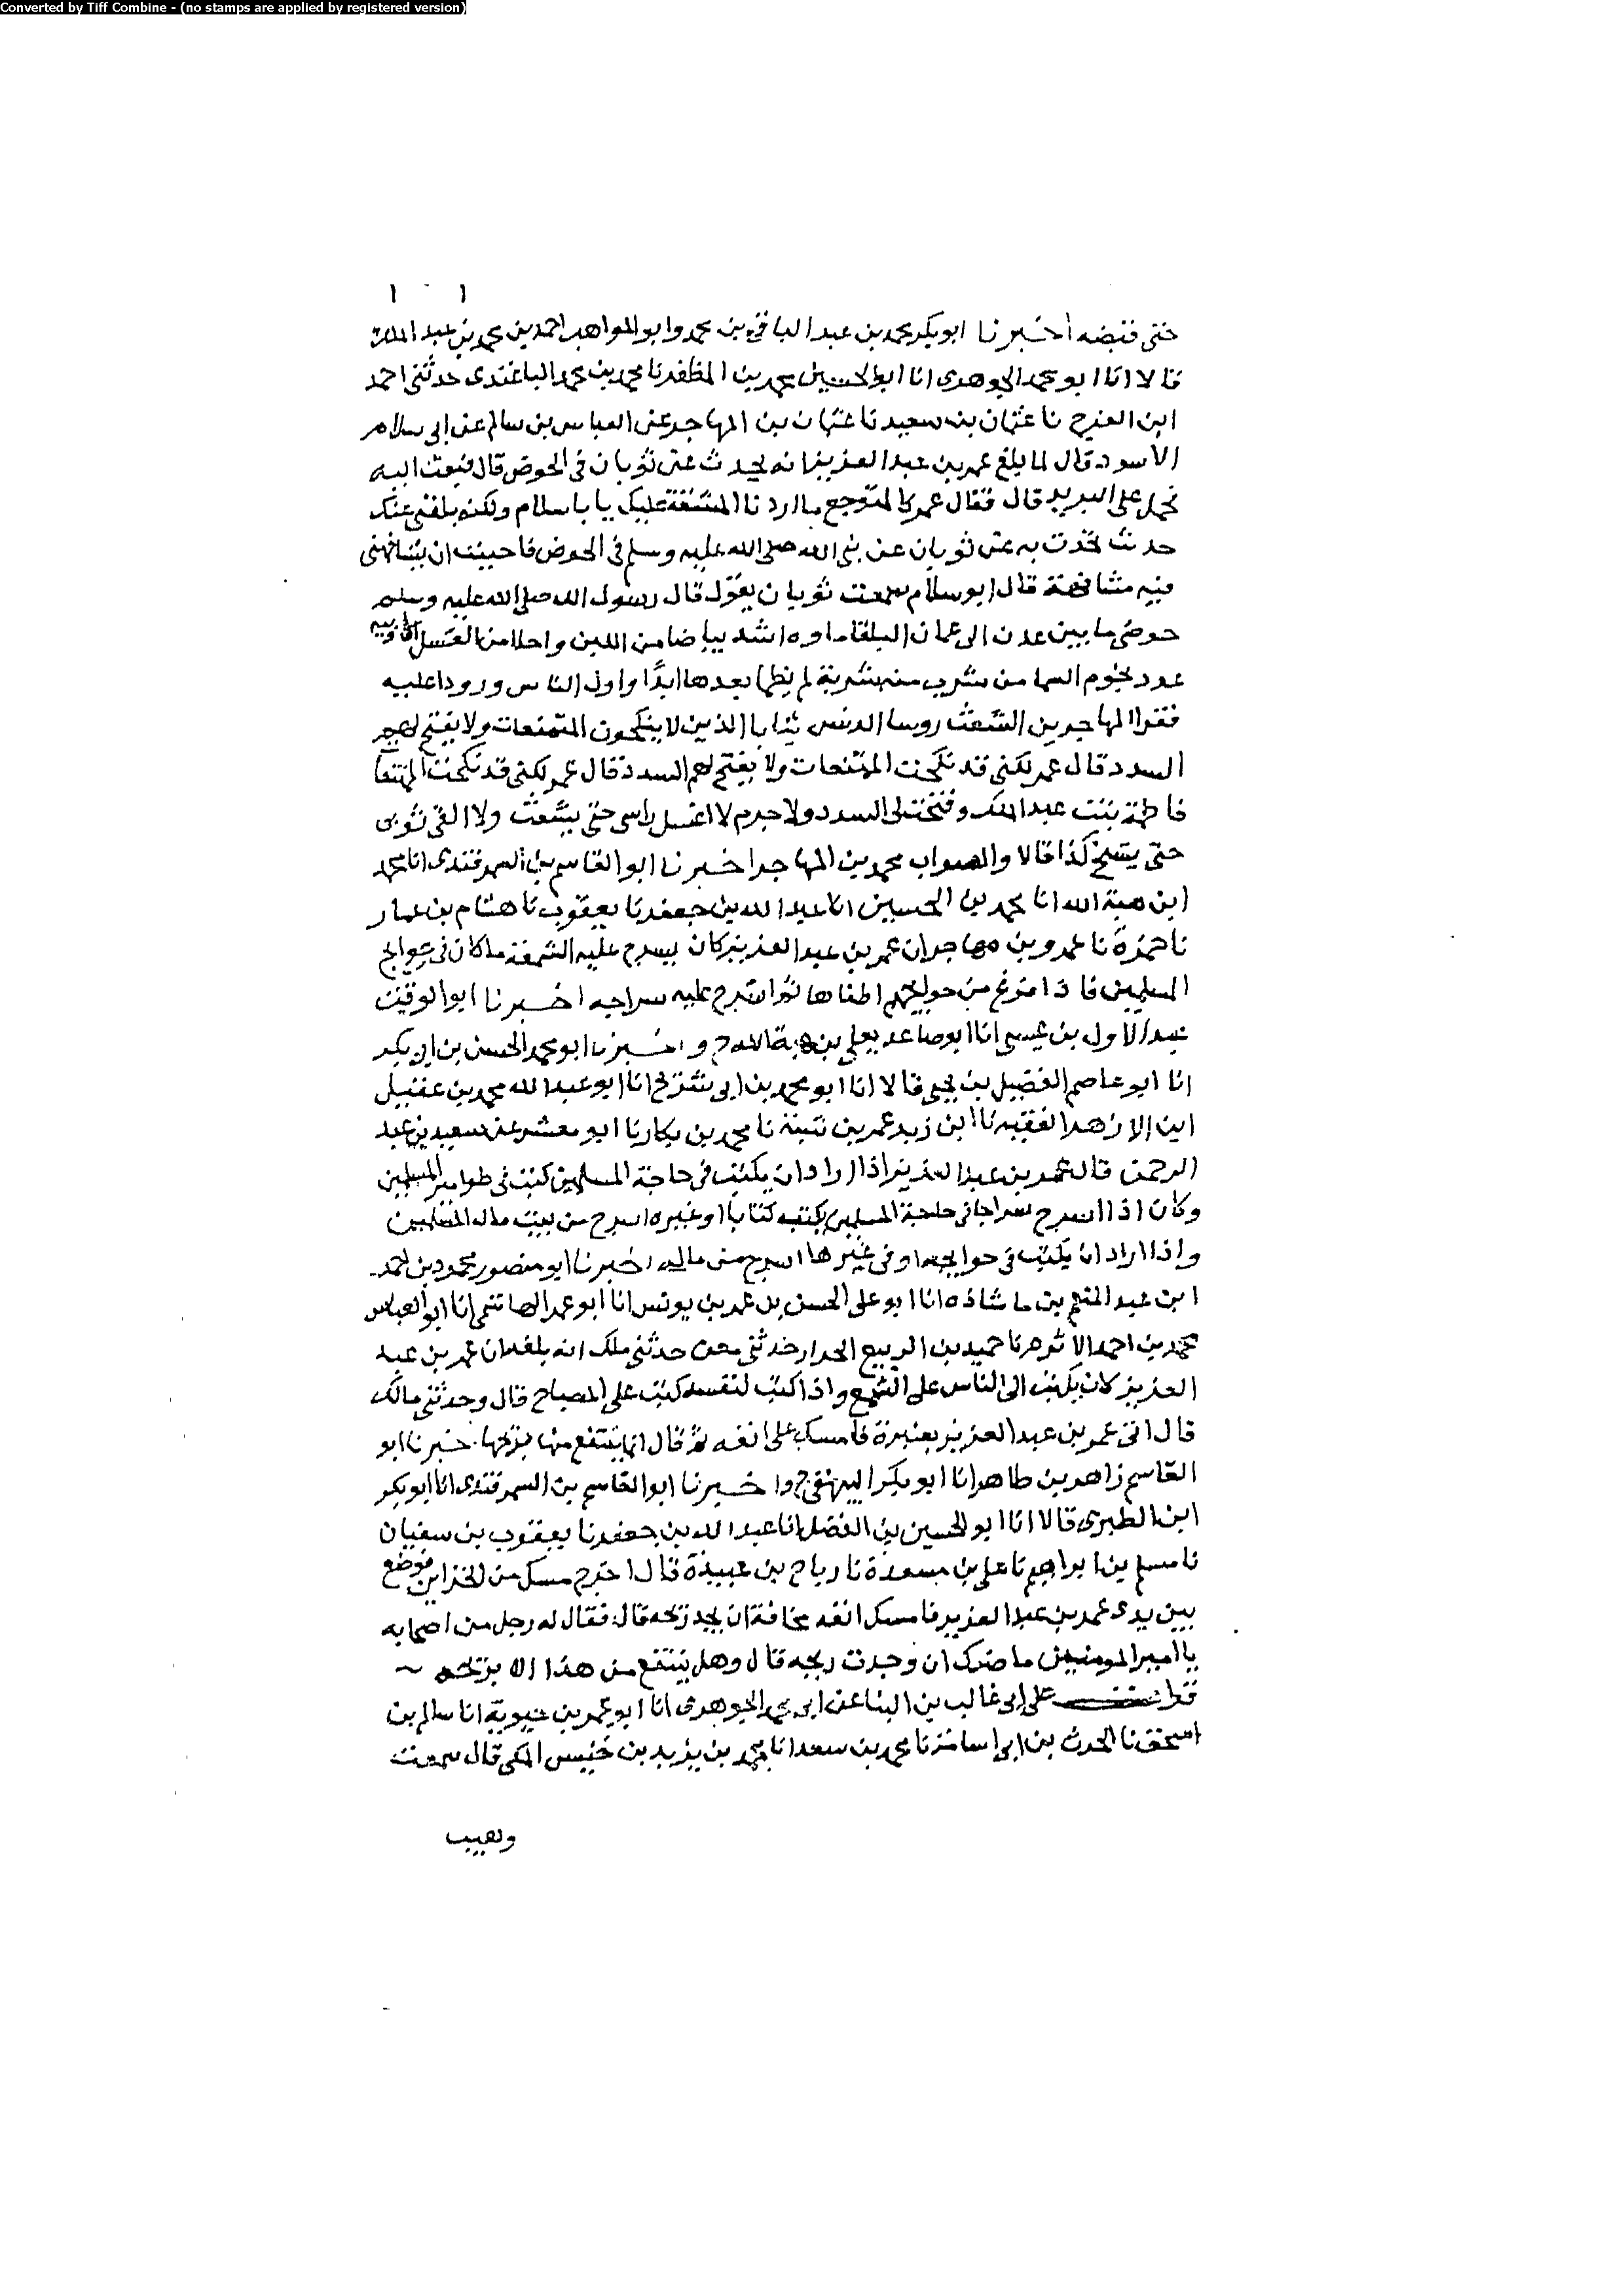 Converted by Tiff Combine - (no stamps are applied by registered version)
١٠١
حتى قبضه أخبرنا ابو بكر محمد بن عبد الباقي بن محمد وابو المواهب احمد بن محمد بن عبد الملك
قالا انا ابو محمد الجوهرى انا ابو الحسين محمد بن المظفر نا محمد بن محمد الباغندى حدثنى احمد
ابن الفرج نا عثمان بن سعيد نا عثمان بن المهاجر عن العباس بن سالم عن ابى سلام
الاسود قال لما بلغ عمر بن عبد العزيز انه يحدث عن ثوبان فى الحوض قال فبعث اليه
فحمل على البريد قال فقال عمر كالمتوجع ما اردنا المشقة عليك يا با سلام ولكنه بلغنى عنك
حديث تحدث به عن ثوبان عن نبى الله صلى الله عليه وسلم فى الحوض فاحببت ان تشافهنى
فيه مشافهة قال ابو سلام سمعت ثوبان يقول قال رسول الله صلى الله عليه وسلم
حوضى ما بين عدن الى عمان البلقا ماوه اشد بياضا من اللبن واحلا من العسل اكاويبه
عدد نجوم السما من شرب منه شربة لم يظما بعدها ابدًا واول الناس ورودا عليه
فقرا المهاجرين الشعث روسا الدنس ثيابا الذين لا ينكحون المتمنعات ولا يفتح لهم
السدد قال عمر لكنى قد نكحت المتمنعات ولا يفتح لهم السدد قال عمر لكنى قد نكحت
فاطمة بنت عبد الملك وفتحت لى السدد ولا جرم لا اغسل راسى حتى يشعث ولا القى ثوبى
حتى يتسخ كذا قالا والصواب محمد بن المهاجر اخبرنا ابو القاسم بن السمرقندى انا محمد
ابن هبة الله انا محمد بن الحسين انا عبد الله بن جعفر نا يعقوب نا هشام بن عمار
نا حمزة نا عمرو بن مهاجر ان عمر بن عبد العزيز كان يسرج عليه الشمعة ما كان فى حوايج
المسلمين فاذا فرغ من حوايجهم اطفاها ثم اسرج عليه سراجه اخبرنا ابو الوقت
عبد الاول بن عيسى انا ابو صاعد يعلى بن هبة الله ح واخبرنا ابو محمد الحسن بن ابى بكر
انا ابو عاصم الفضيل بن يحيى قالا انا ابو محمد بن ابى شريح انا ابو عبد الله محمد بن عقيل
ابن الازهر الفقيه نا ابن زيد عمر بن شبة نا محمد بن بكار نا ابو معشر عن سعيد بن عبد
الرحمن قال عمر بن عبد العزيز اذا اراد ان يكتب فى حاجة المسلمين كتب فى طوامير المسلمين
وكان اذا اسرج سراجا فى حاجة المسلمين يكتب كتابا او غيره اسرج من بيت مال المسلمين
واذا اراد ان يكتب فى حوايجه او فى غيرها اسرج من ماله اخبرنا ابو منصور محمود بن احمد
ابن عبد المنعم بن ماشاذه انا ابو على الحسن بن عمر بن يونس انا ابو عمر الهاشمى انا ابو العباس
محمد بن احمد الاثرم نا حميد بن الربيع الخزاز حدثنى معن حدثنى ملك انه بلغه ان عمر بن عبد
العزيز كان يكتب الى الناس على الشمع واذا كتب لنفسه كتب على المصباح قال وحدثنى مالك
قال اتى عمر بن عبد العزيز بعنبرة فامسك على انفه ثم قال انما ينتفع منها بريحها اخبرنا ابو
القاسم زاهر بن طاهر انا ابو بكر البيهقى ح واخبرنا ابو القاسم بن السمرقندى انا ابو بكر
ابن الطبرى قالا انا ابو الحسين بن الفضل انا عبد الله بن جعفر نا يعقوب بن سفيان
نا مسلم بن ابراهيم نا على بن مسعدة نا رياح بن عبيدة قال اخرج مسك من الخزاين فوضع
بين يدى عمر بن عبد العزيز فامسك انفه مخافة ان يجد ريحه قال فقال له رجل من اصحابه
يا امير المومنين ما ضرك ان وجدت ريحه قال وهل ينتفع من هذا الا بريحه
قرات على ابى غالب بن البنا عن ابى محمد الجوهرى انا ابو عمر بن حيوية انا سالم بن
اسحق نا الحرث بن ابى اسامة نا محمد بن سعد انا محمد بن يزيد بن خنيس المكى قال سمعت
وهيب